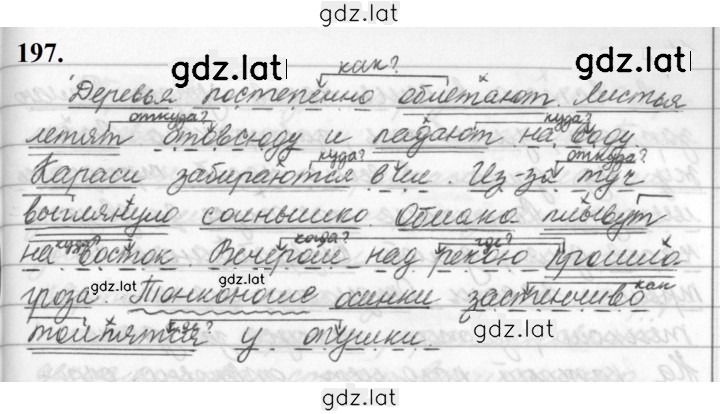 gdz.lat
197.
gdz.lat как? gdz.lat
Деревья постепенно облетают. Листья
откуда? куда?
летят отовсюду и падают на воду.
куда? откуда?
Караси забираются в ил. Из-за туч
выглянуло солнышко. Облака плывут
куда? когда? где?
на восток. Вечером над рекою прошла
gdz.lat gdz.lat
гроза. Тонконогие осинки застенчиво как
где? gdz.lat
толпятся у опушки.
gdz.lat